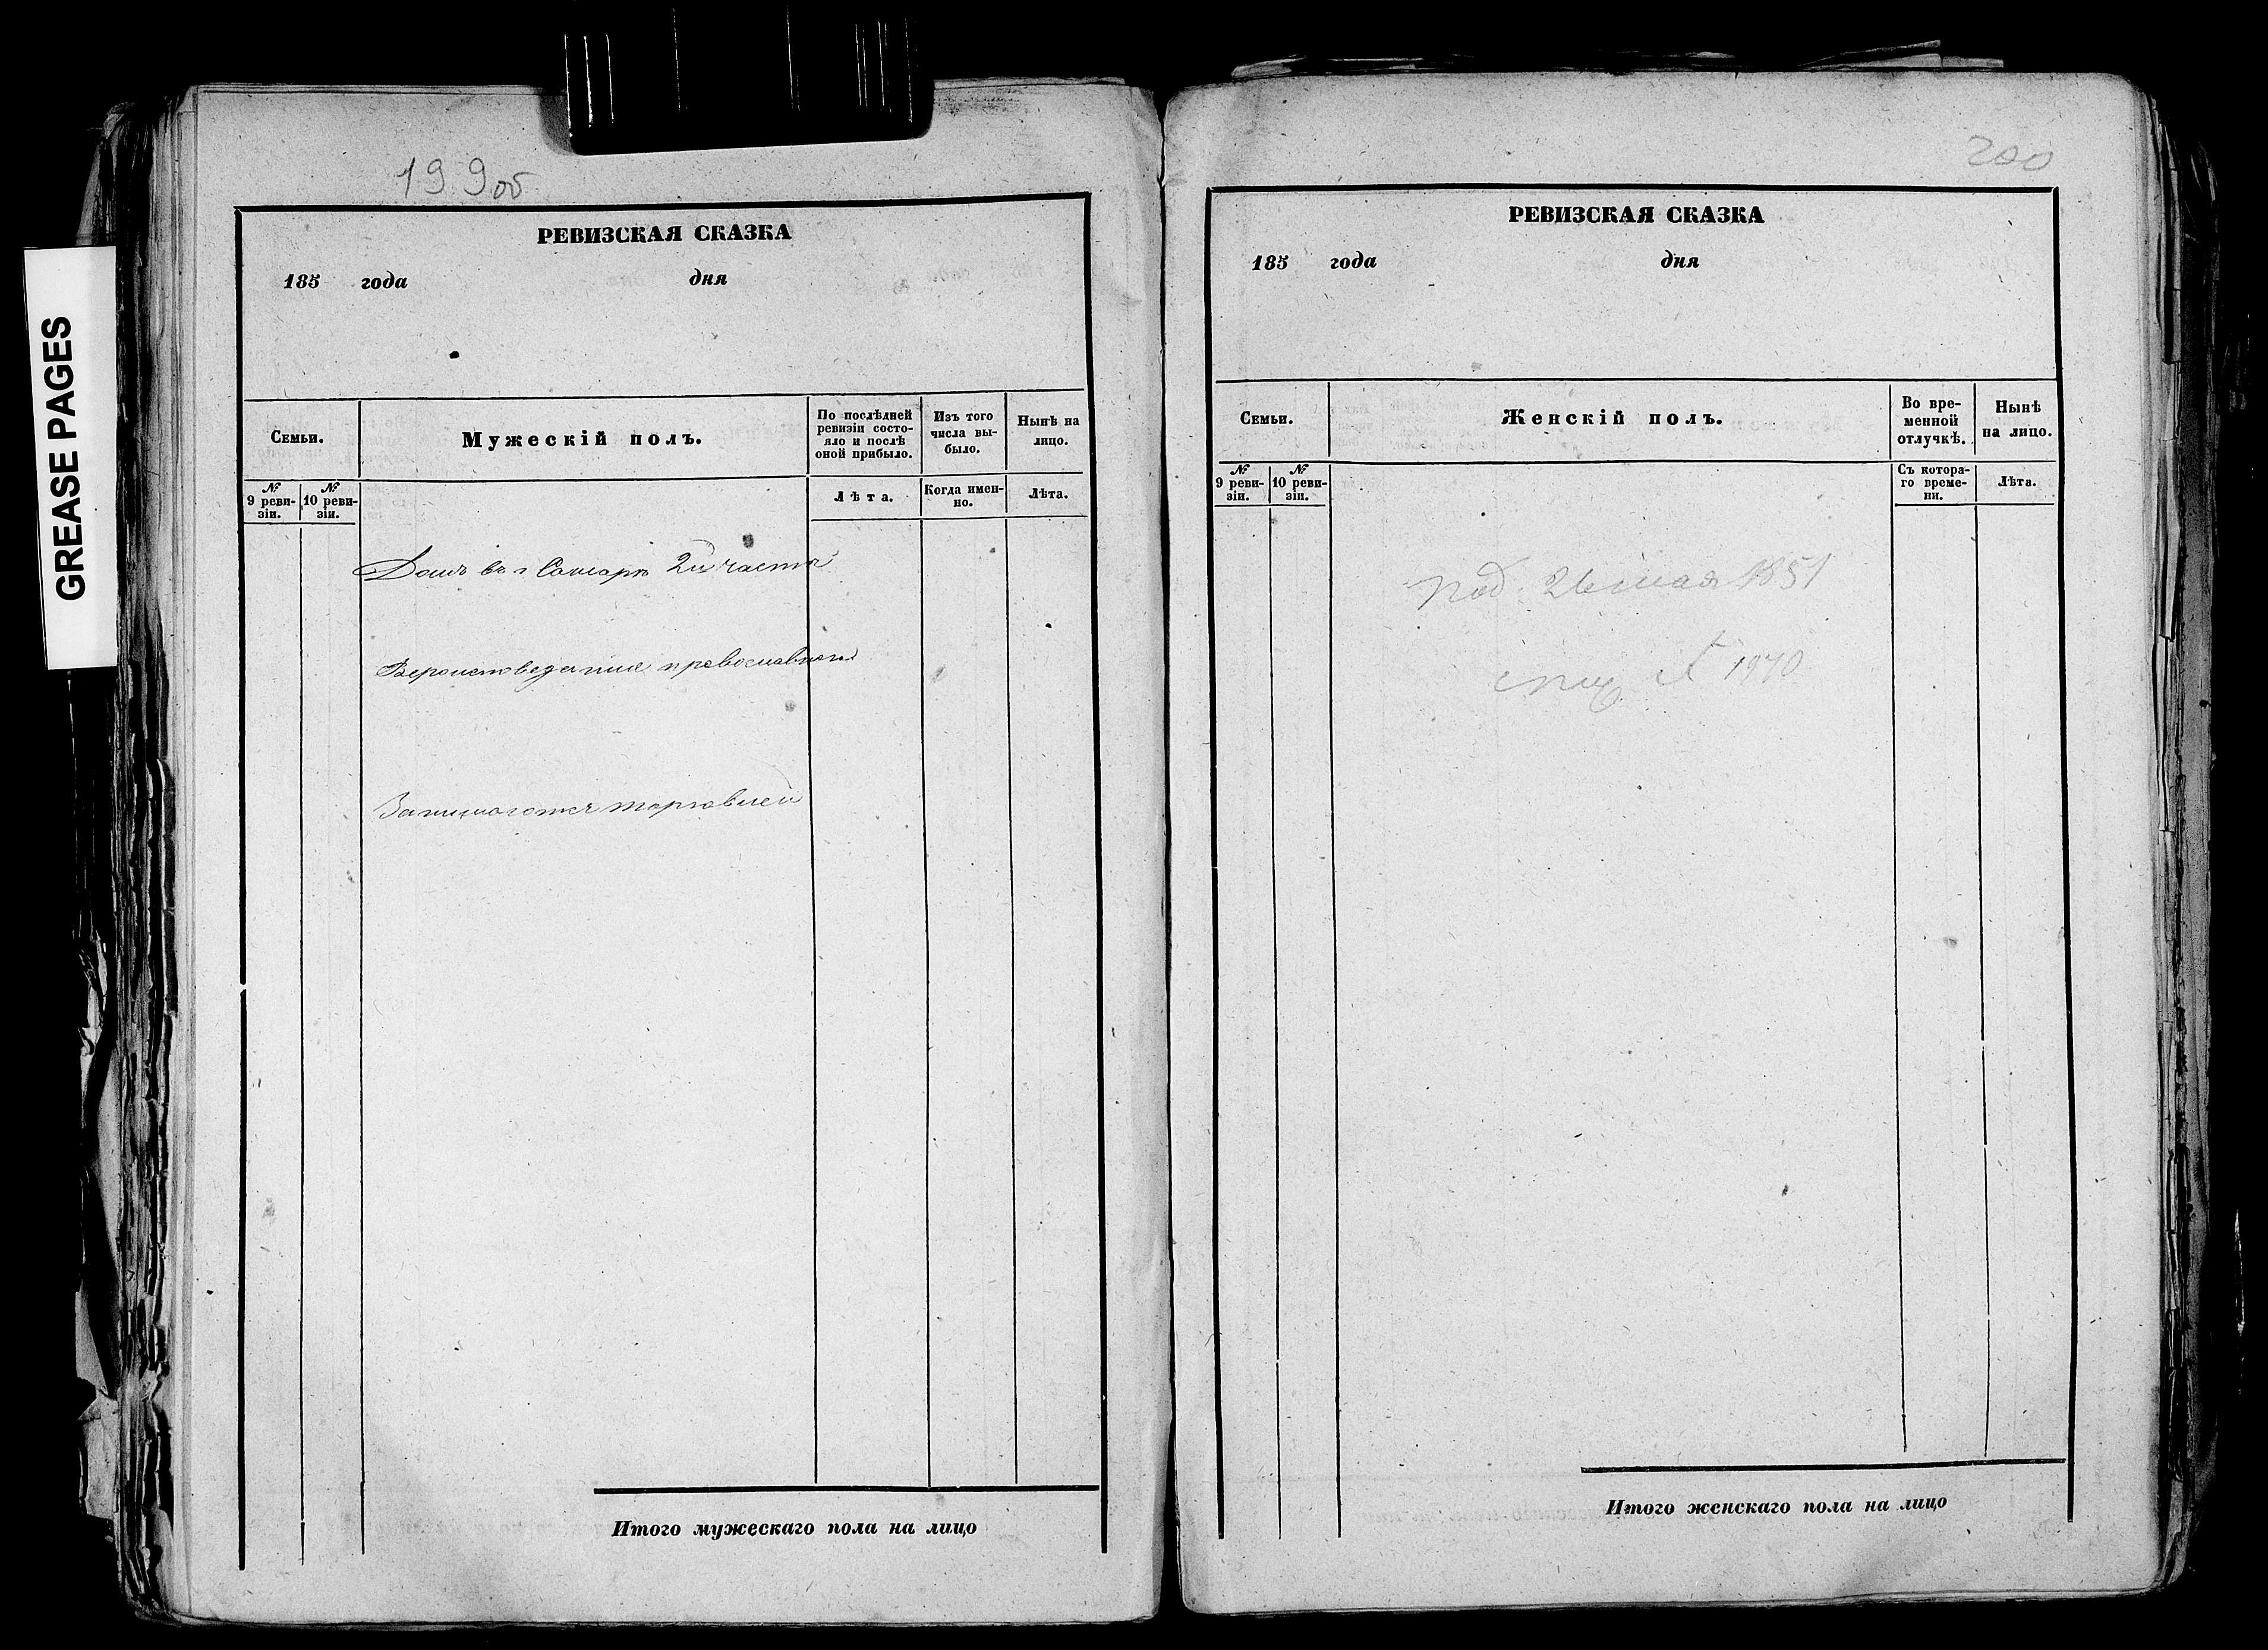 GREASE PAGES
199об
РЕВИЗСКАЯ СКАЗКА
185 года дня
Семьи.
Мужескій полъ.
По послѣдней ревизіи состо-
яло и послѣ
оной прибыло.
Изъ того
числа вы-
было.
Нынѣ на
лицо.
№
9 реви-
зіи.
№
10 реви-
зіи.
Лѣта.
Когда имен-
но.
Лѣта.
Домъ въ г Самарѣ 2й части
Вероисповедания православнаго
Занимается торговлей
Итого мужескаго пола на лицо
200
РЕВИЗСКАЯ СКАЗКА
185 года дня
Семьи.
Женскій полъ.
Во вре-
менной
отлучкѣ.
Нынѣ
на лицо.
№
9 реви-
зіи.
№
10 реви-
зіи.
Съ котора-
го време-
ни.
Лѣта.
под. 26 мая 1851
№ 1970
Итого женскаго пола на лицо